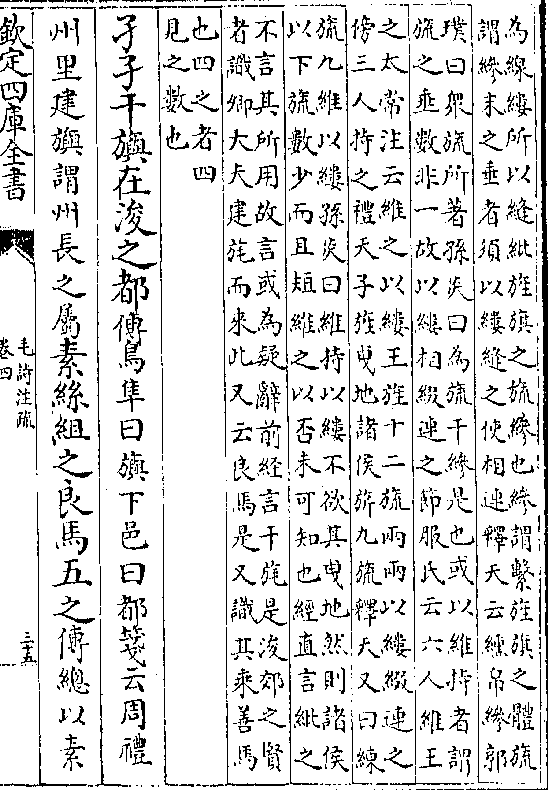 為線縷所以縫紕旌旗之旒縿也縿謂繫旌旗之體旒
謂縿末之垂者須以縷縫之使相連釋天云纁帛縿郭
璞曰衆旒所著孫炎曰為旒于縿是也或以維持者謂
旒之垂數非一故以縷相綴連之節服氏云六人維王
之太常注云維之以縷王旌十二旒兩兩以縷綴連之
傍三人持之禮天子旌曳地諸侯旂九旒釋天又曰練
旒九維以縷孫炎曰維持以縷不欲其曳地然則諸侯
以下旒數少而且短維之以否未可知也經直言紕之
不言其所用故言或為疑辭前經言干旄是浚郊之賢
者識卿大夫建旄而來此又云良馬是又識其乘善馬
也四之者四
見之數也
孑孑干旟在浚之都傳鳥隼曰旟下邑曰都箋云周禮
州里建旟謂州長之屬素絲組之良馬五之傳總以素
欽定四庫全書
毛詩注疏
卷四
三十五